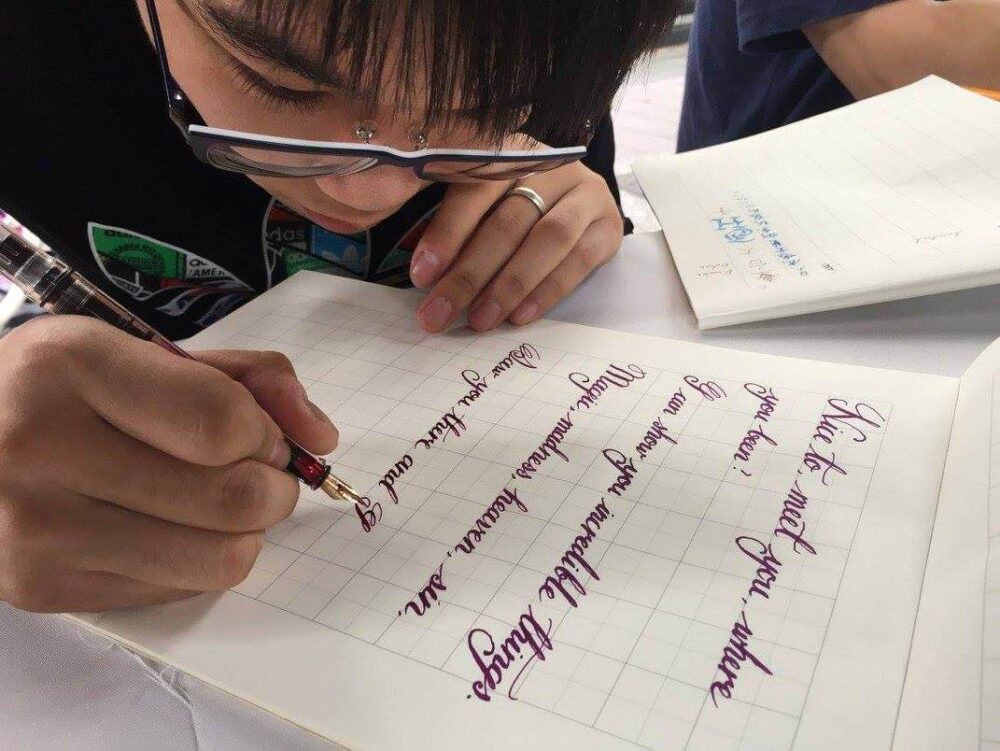 Nice to, meet you, where
you been?
I can show you incredible things.
Magic, madness, heaven, sin.
Saw you there and I
adidas